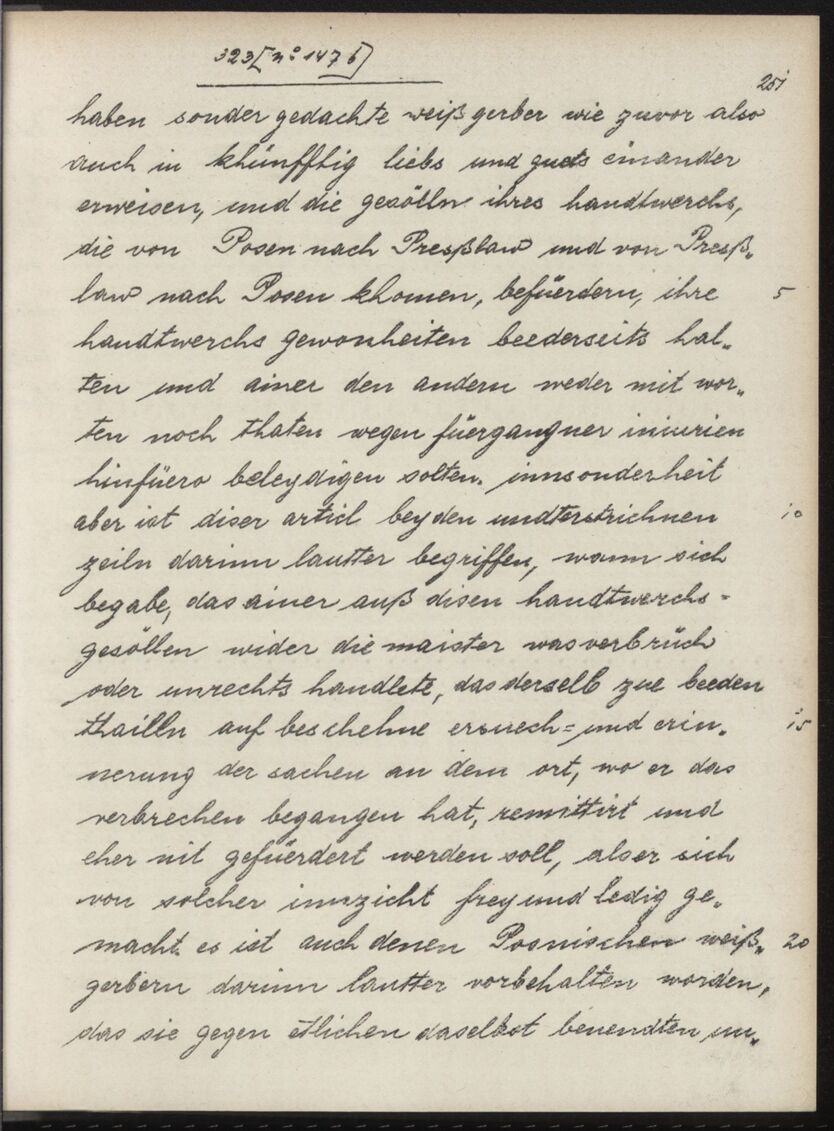 323 [nº 1476]
251
haben sonder gedachte weißgerber wie zuvor also
auch in khünfftig liebs und guets einander
erweisen, und die gesölln ihres handtwerchs,
die von Posen nach Presßlaw und von Presß„
law nach Posen khomen, befüerdern, ihre 5
handtwerchs gewonheiten beederseits hal„
ten und ainer den andern weder mit wor„
ten noch thaten wegen füergangner iniurien
hinfüero beleydigen solten. innsonderheit
aber ist diser articl bey den undterstrichnen 10
zeiln darinn lautter begriffen, wann sich
begabe, das ainer auß disen handtwerchs=
gesöllen wider die maister was verbrüch
oder unrechts handlete, das derselb zue beeden
thailln auf beschehne ersuech= und erin„ 15
nerung der sachen an dem ort, wo er das
verbrechen begangen hat, remittirt und
eher nit gefüerdert werden soll, als er sich
von solcher innzicht frey und ledig ge„
macht. es ist auch denen Posnischen weiß„ 20
gerbern darinn lautter vorbehalten worden,
das sie gegen etlichen daselbst benendten un„